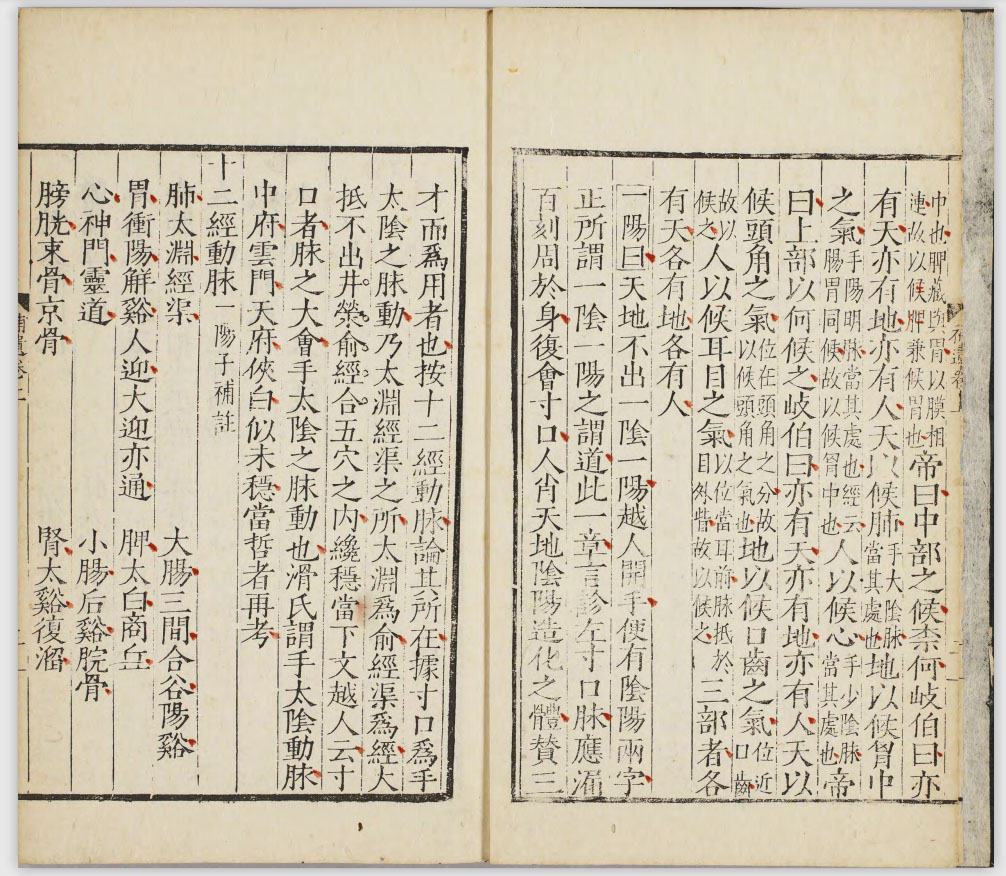 中也脾藏與胃以膜相連故以候脾兼候胃也帝曰中部之候柰何岐伯曰亦
有天亦有地亦有人天以候肺手大陰脉當其處也地以候胷中
之氣手陽明脉當其處也經云腸胃同候故以候胷中也人以候心手少陰脉當其處也帝
曰上部以何候之岐伯曰亦有天亦有地亦有人天以
候頭角之氣位在頭角之分故以候頭角之氣也地以候口齒之氣位近口齒
故以候之人以候耳目之氣以位當耳前脉抵於目外眥故以候之三部者各
有天各有地各有人
一陽曰天地不出一陰一陽越人開手便有陰陽兩字
正所謂一陰一陽之謂道此一章言診左寸口脉應漏
百刻周於身復會寸口人肖天地陰陽造化之體贊三
才而爲用者也按十二經動脉論其所在據寸口爲手
太陰之脉動乃太淵經渠之所太淵爲俞經渠爲經大
抵不出井滎俞經合五穴之内纔穩當下文越人云寸
口者脉之大會手太陰之脉動也滑氏謂手太陰動脉
中府雲門天府俠白似未穩當哲者再考
十二經動脉一陽子補註
肺太淵經渠 大腸三間合谷陽谿
胃衝陽解谿人迎大迎亦通 脾太白商丘
心神門靈道 小腸后谿腕骨
膀胱束骨京骨 腎太谿復溜